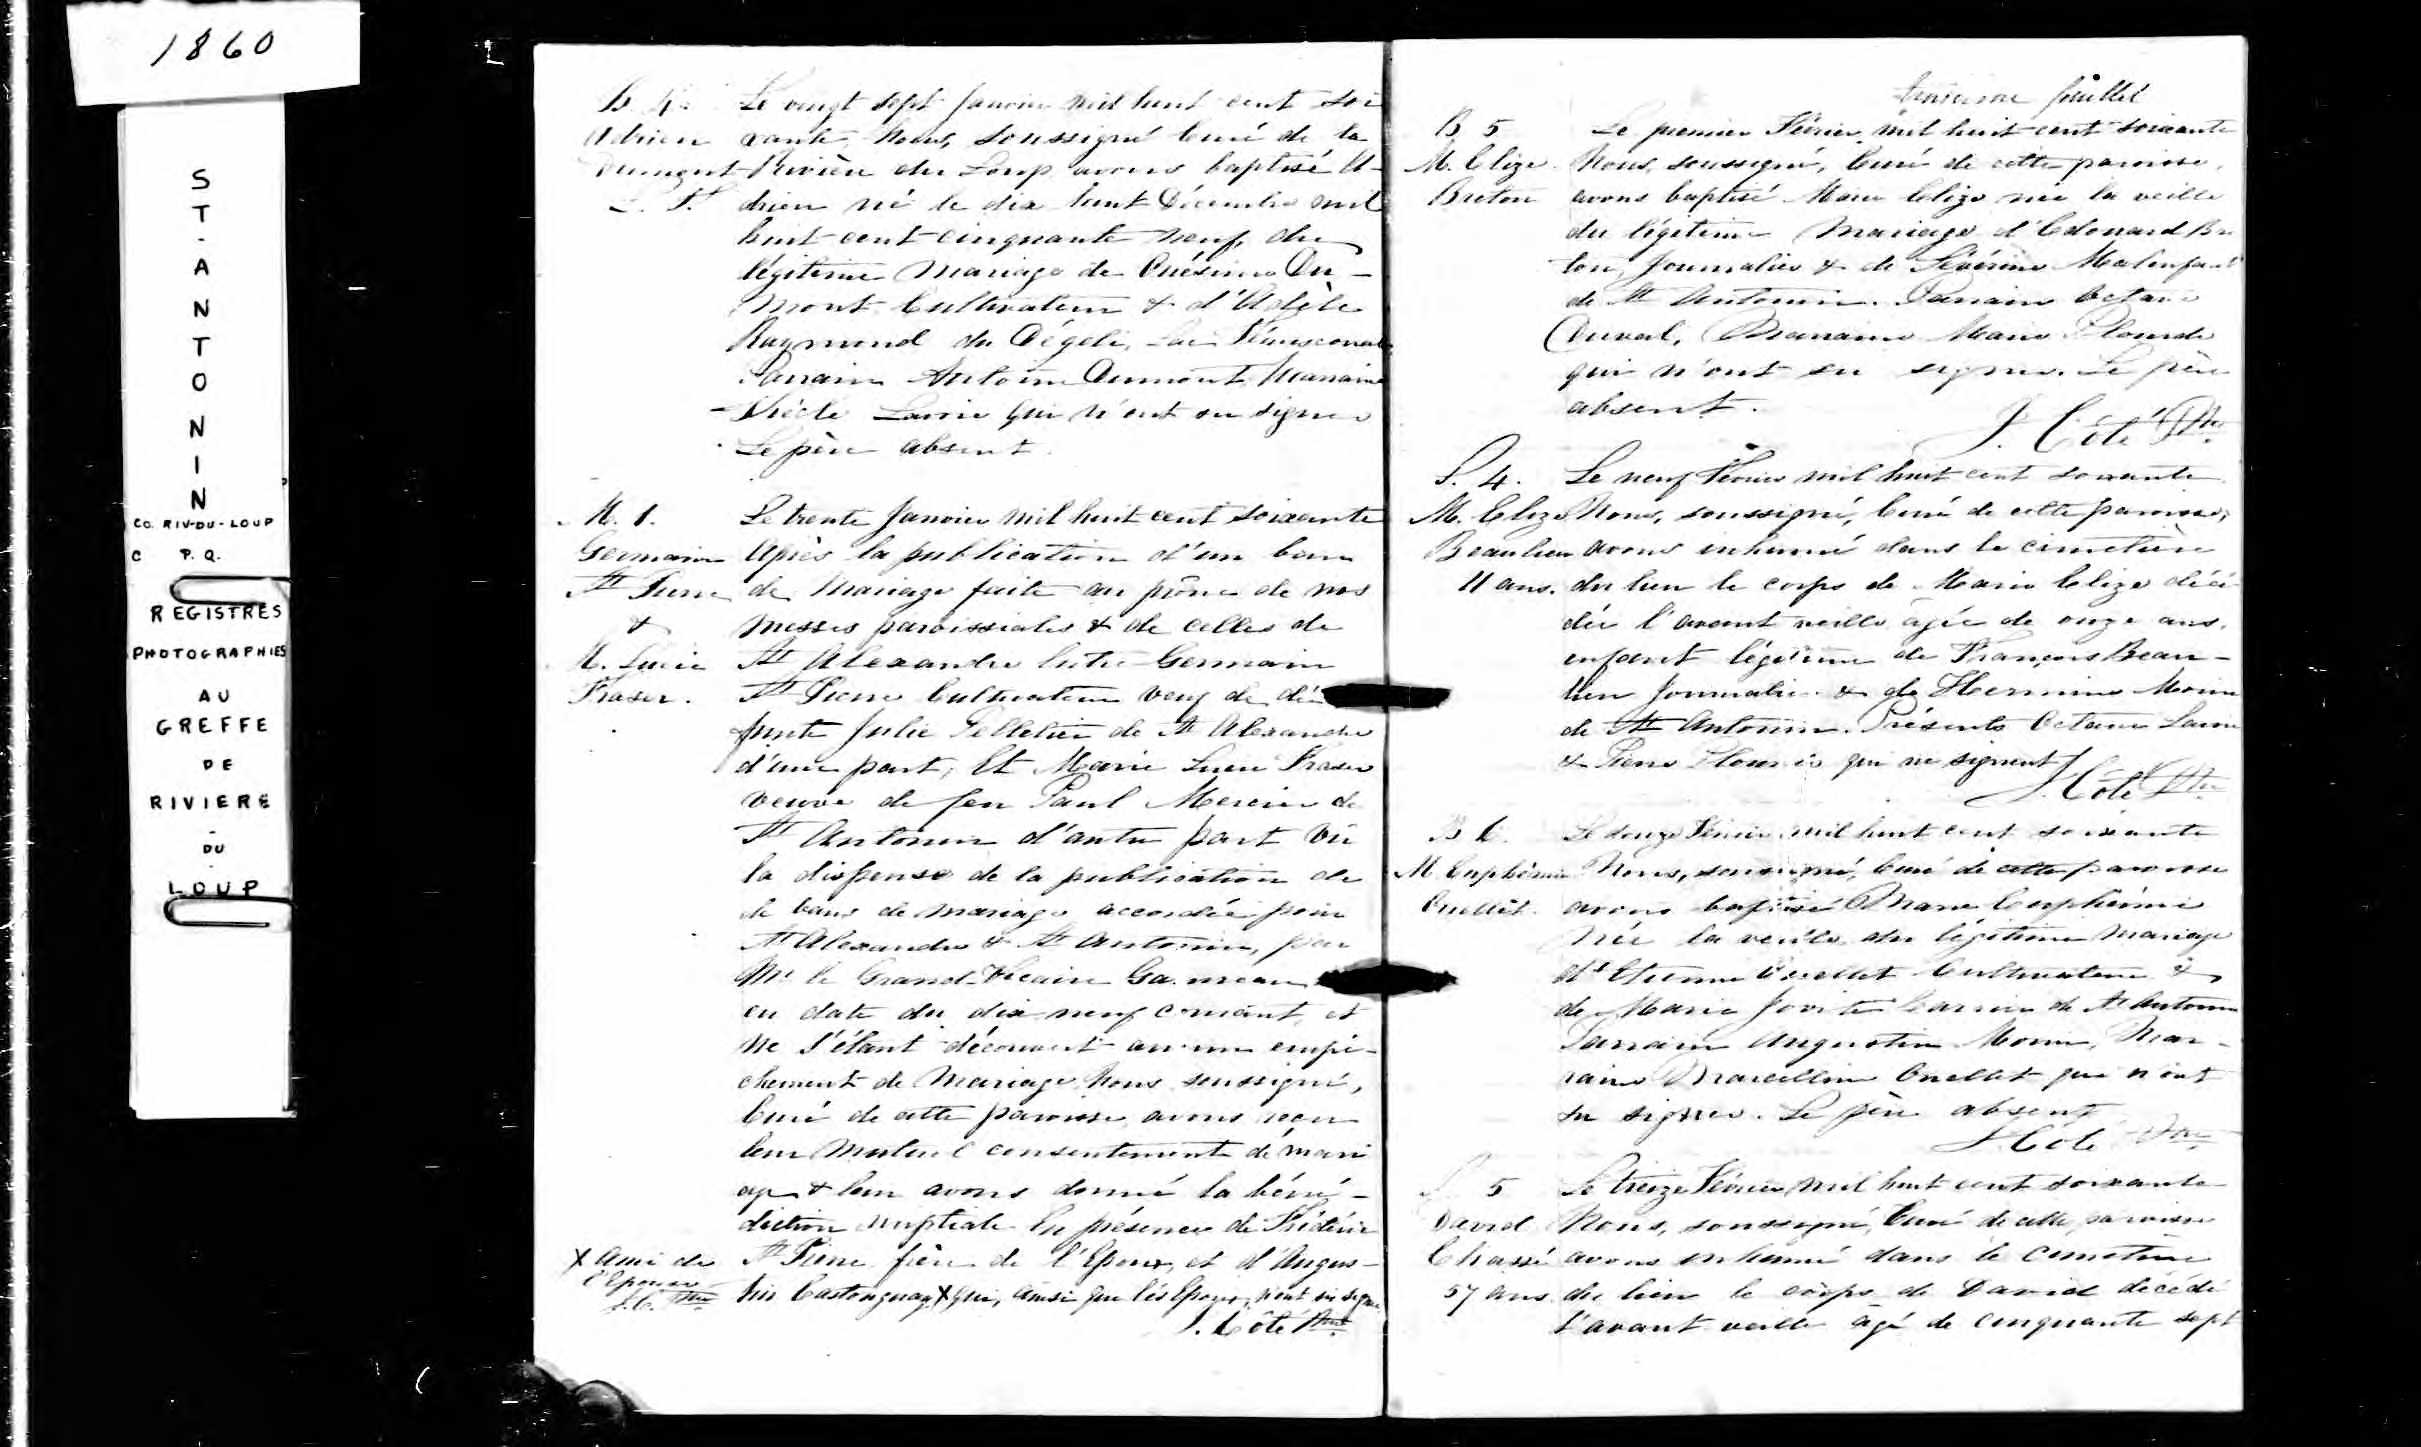 1860
S
T
.
A
N
T
O
N
I
N
CO. RIV-DU-LOUP
C P.Q.
REGISTRES
PHOTOGRAPHIES
AU
GREFFE
DE
RIVIERE
-
DU
-
LOUP
B. 4. Le vingt sept Janvier mil huit cent soi
Adrien xante, Nous, soussigné Curé de la
Dumont Rivière du Loup avons baptisé A-
drien né le dix huit Décembre mil
huit cent cinquante neuf, du
légitime mariage de Onésime Du-
mont Cultivateur & d'Adèle
Raymond du Dégeli, Lac Témiscouata
Parrain Antoine Dumont Marraine
Lavoie qui n'ont su signer
Le père absent.
M. 1. Le trente Janvier mil huit cent soixante
Germain Après la publication d'un ban
St Pierre de mariage faite au prône de nos
& messes paroissiales & de celles de
M. Lucie St Alexandre entre Germain
Fraser. St Pierre Cultivateur veuf de dé
funte Julie Pelletier de St Alexandre
d'une part, Et Marie Lucie Fraser
veuve de feu Paul Mercier de
St Antonin d'autre part Vu
la dispense de la publication de
de bans de mariage accordée pour
St Alexandre & St Antonin, par
Mr le Grand-Vicaire
en date du dix neuf courant, et
ne s'étant découvert aucun empê-
chement de mariage, Nous soussigné,
Curé de cette paroisse, avons reçu
leur mutuel consentement de mari
age & leur avons donné la béné-
diction nuptiale En présence de Frédéric
X ami de St Pierre frère de l'Epoux, et d'Augus-
l'Epouse tin Castonguay X qui, ainsi que les Epoux, n'ont su signer
J.C. Ptre J. Côté Ptre
troisième feuillet
B 5 Le premier Février mil huit cent soixante
M. Elize Nous, soussigné, Curé de cette paroisse,
Breton avons baptisé Marie Elize née la veille
du légitime Mariage d'Edouard Bre
ton, Journalier & de Sévérine Malenfant
de St Antonin. Parrain Octave
Duval, Marraine Marie Plourde
qui n'ont su signer. Le père
absent.
J. Côté Ptre
S. 4. Le neuf Février mil huit cent soixante
M. Elize Nous, soussigné, Curé de cette paroisse,
Beaulieu avons inhumé dans le cimetière
11 ans. du lieu le corps de Marie Elize décé
dée l'avant veille âgée de onze ans,
enfant légitime de François Beau-
lieu Journalier & de Hermine Morin
de St Antonin. Présents Octave
& Pierre qui ne signent
J. Côté Ptre
B 6. Le douze Février mil huit cent soixante
M Euphémie Nous, soussigné, Curé de cette paroisse
Ouellet. avons baptisé Marie Euphémie
Née la veille du légitime mariage
d'Etienne Ouellet Cultivateur &
de Marie Jovite de St Antonin
Parrain Augustin Morin, Mar-
raine Marcelline Ouellet qui n'ont
su signer. Le père absent
J. Côté Ptre
S 5 Le treize Février mil huit cent soixante
David Nous, soussigné, Curé de cette paroisse
Chassé avons inhumé dans le cimetière
57 ans du lieu le corps de David décédé
l'avant veille âgé de cinquante sept